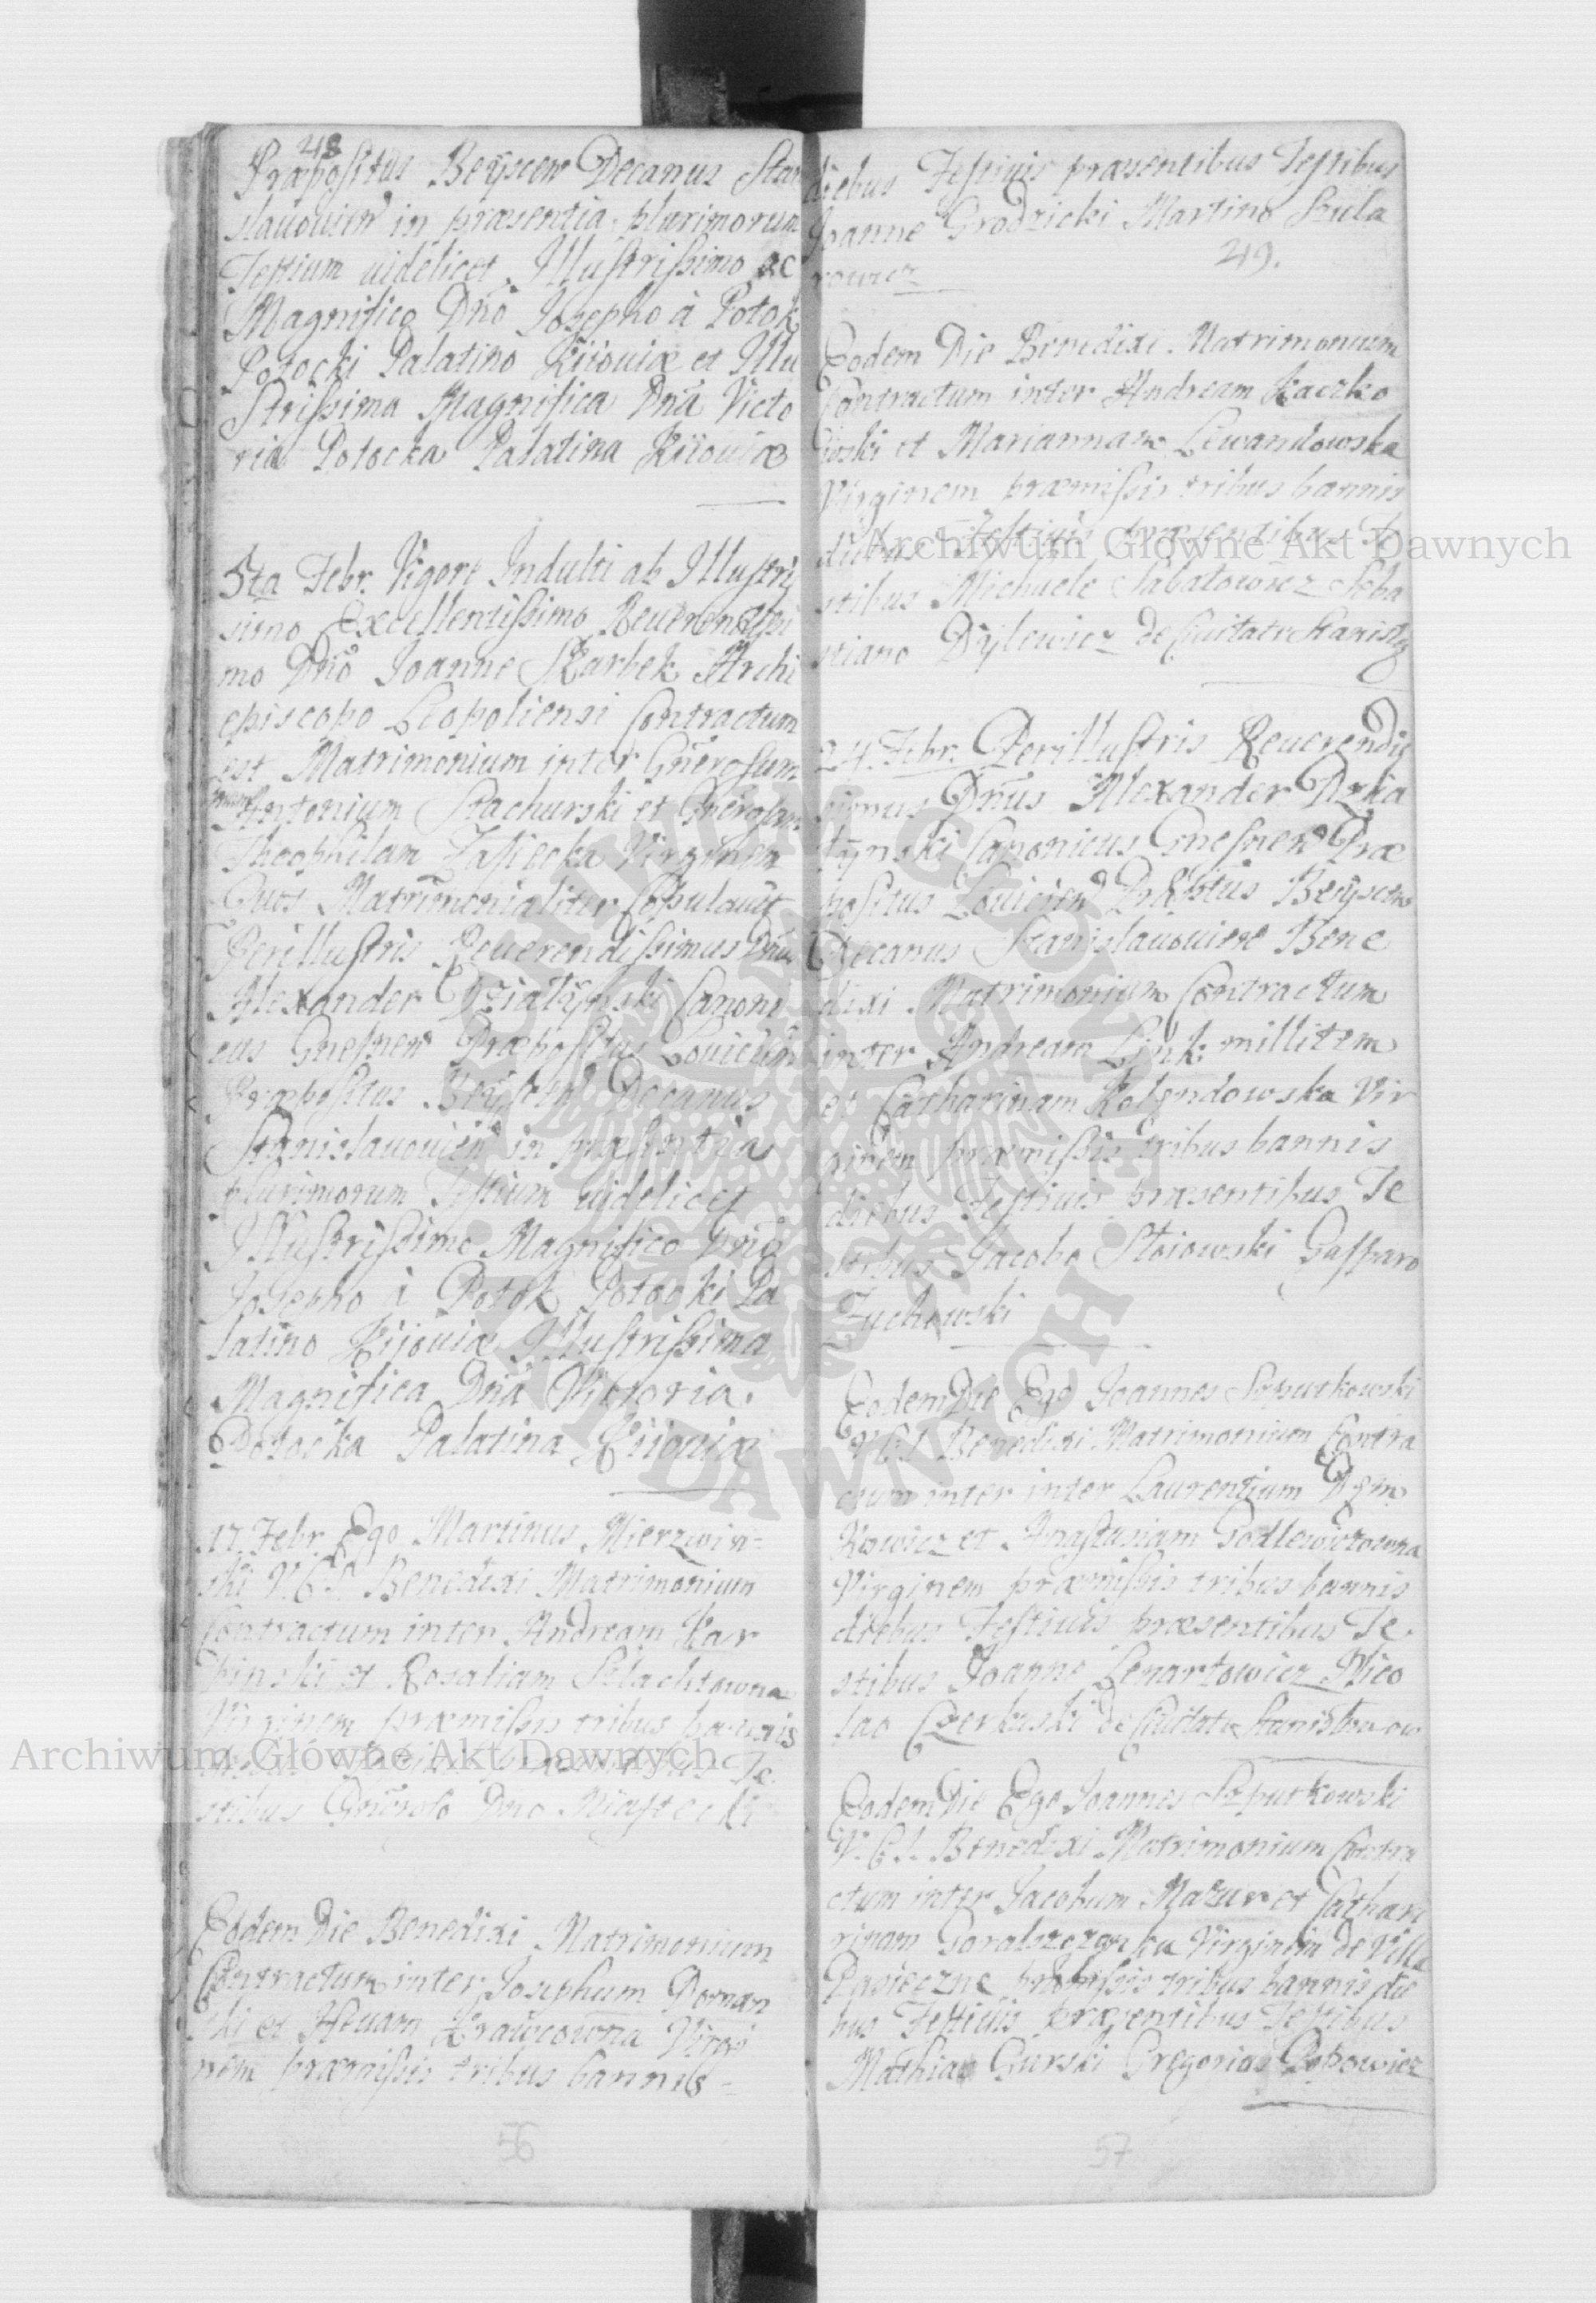 48
Præpositus Beyscen Decanus Stani
slauouien in præsentia plurimorum
Testium uidelicet Illustrissimo ac
Magnifico Dño Josepho à Potok
Potocki Palatino Kiiouiæ et Illu
strissima Magnifica Dña Victo
ria Potocka Palatina Kiiouiæ
5ta Febr. Vigore Indulti ab Illustris
simo Excellentissimo Reuerendissi
mo Dño Joanne Skarbek Archi
episcopo Leopoliensi Contractum
est Matrimonium inter Gñerosum
Antonium Stachurski et Gñerosam
Theophilam Zasiecka Virginem
Quos Matrimonialiter Copulauit
Perillustris Reuerendissimus Dñus
Alexander Działyński Canoni
cus Gnesnen Præpositus Louicien
Præpositus Beyscen Decanus
Stanislauouien in præsentia
plurimorum Testium uidelicet
Illustrissimo Magnifico Dño
Josepho à Potok Potocki Pa
latino Kijouiæ Illustrissima
Magnifica Dña Victoria
Potocka Palatina Kiiouiæ
17 Febr. Ego Martinus Mierzwin=
ski V.C.S. Benedixi Matrimonium
Contractum inter Andream Kar
pinski et Rosaliam Szlachtowna
Virginem præmissis tribus bannis
diebus Festiuis præsentibus Te
stibus Gñeroso Dno
Eodem Die Benedixi Matrimonium
Contractum inter Josephum Doman
ski et Heuam Krawcowna Virgi
nem præmissis tribus bannis=
56
diebus Festiuis præsentibus Testibus
Joanne Grodzicki Martino Szula
49.
rowicz
Eodem Die Benedixi Matrimonium
Contractum inter Andream Kaczko
wski et Mariannam Lewandowska
Virginem præmissis tribus bannis
diebus Festiuis præsentibus Te
stibus Michaele Sabatowicz Seba
stiano Dylewicz de Ciuitate
24. Febr. Perillustris Reuerendis
simus Dñus Alexander Dzia
łynski Canonicus Gnesnen Præ
positus Louicien Beyscen
Decanus Stanislauouien Bene
dixi Matrimonium Contractum
inter Andream Link millitem
et Catharinam Kolendowska Vir
ginem præmissis tribus bannis
diebus Festiuis præsentibus Te
stibus Jacobo Stoiowski Gasparo
Zuchowski
Eodem Die Ego Joannes Szputkowski
V.C.S. Benedixi Matrimonium Contra
ctum inter inter Laurentium Dym
kowicz et Anastasiam Godlewiczowna
Virginem præmissis tribus bannis
diebus Festiuis præsentibus Te
stibus Joanne Lenartowicz Nico
lao Czerkaski de Ciuitate Stanislauow
Eodem Die Ego Joannes Szputkowski
V.C.S. Benedixi Matrimonium Contra
ctum inter Jacobum Mazur et Catha
rinam Goralszczanka Virginem de Villa
Pasieczne præmissis tribus bannis die
bus Festiuis præsentibus Testibus
Mathia Gurski Gregorio Popowicz
57
Archiwum Główne Akt Dawnych
Archiwum Główne Akt Dawnych
ARCHIWUM GŁÓWNE
AKT DAWNYCH